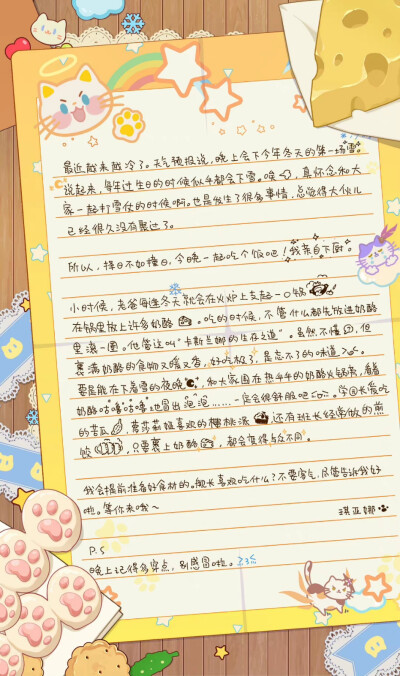 最近越来越冷了。天气预报说，晚上会下今年冬天的第一场雪。
说起来，每年过生日的时候似乎都会下雪。唉，真怀念和大
家一起打雪仗的时候啊。也是发生了很多事情，总觉得大伙儿
已经很久没有聚过了。
所以，择日不如撞日，今晚一起吃个饭吧！我亲自下厨。
小时候，老爸每逢冬天就会在火炉上支起一口锅
在锅里放上许多奶酪。吃的时候，不管什么都先放进奶酪
里滚一圈。他管这叫“卡斯兰娜的生存之道”。虽然不懂，但
裹满奶酪的食物又暖又香，好吃极了，是忘不了的味道
要是能在下着雪的夜晚，和大家围在热乎乎的奶酪火锅旁，看着
奶酪咕嘟咕嘟地冒出泡泡……一定会很舒服吧。学园长爱吃
的苦瓜，萝莎莉娅喜欢的樱桃派，还有班长经常做的煎
饺，只要裹上奶酪，都会变得与众不同。
我会提前准备好食材的。舰长喜欢吃什么？不要客气，尽管告诉我好
啦。等你来哦～
琪亚娜
P.S
晚上记得多穿点，别感冒啦。